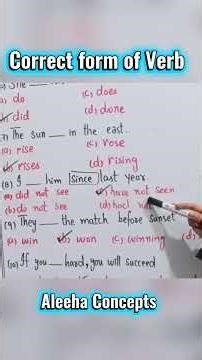 Correct form of Verb
(a) do (c) does
(b) did (d) done
(7) The sun ___ in the east.
(a) rise (c) rose
(b) rises (d) rising
(8) I ___ him since last year
(a) did not see (c) have not seen
(b) do not see (d) had not
(9) They ___ the match before sunset
(a) win (b) won (c) winning (d)
(10) If you ___ hard, you will succeed
Aleeha Concepts